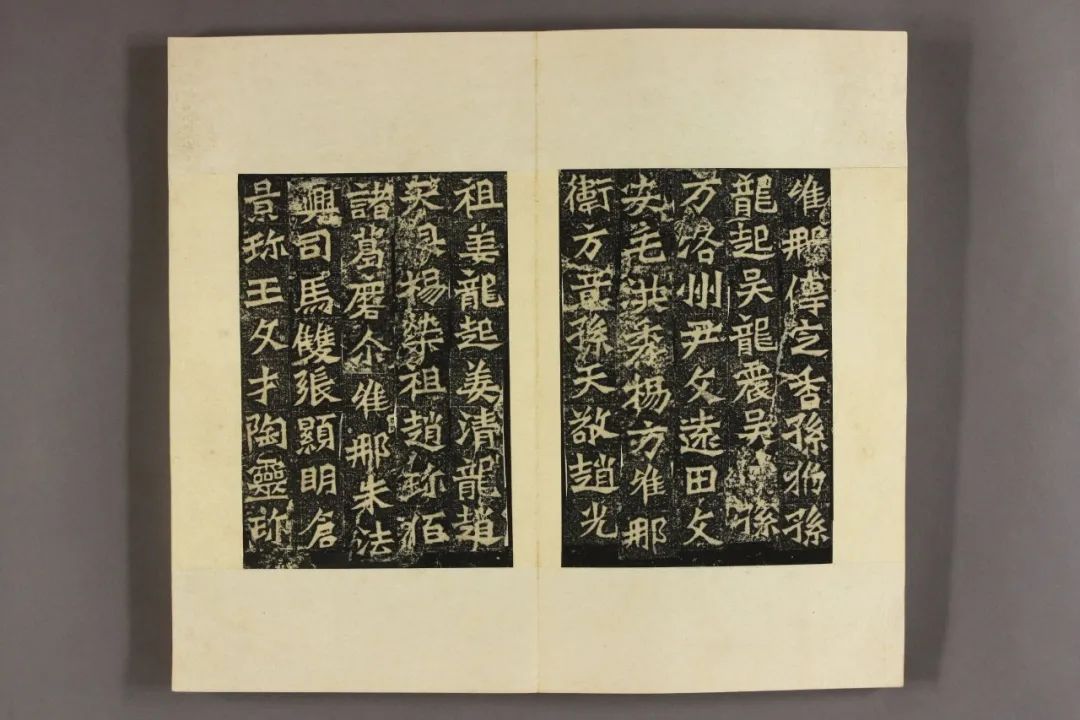 唯那傅定香孫豹孫
龍起吳龍震吳孫
万洛州尹文遠田文
安毛洪秀楊方唯那
衛方意孫天敬趙光
祖姜龍起姜清龍趙
奴楊榮祖趙珎
諸葛磨唯那朱法
興司馬雙張顯明倉
景珎王文才陶靈